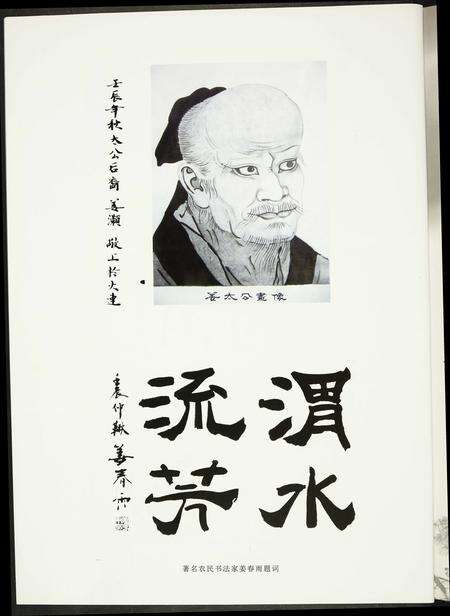 壬辰年秋太公后裔 姜 敬上於大连
姜太公畫像
渭水
流芳
仲秋 姜春雨
著名农民书法家姜春雨题词